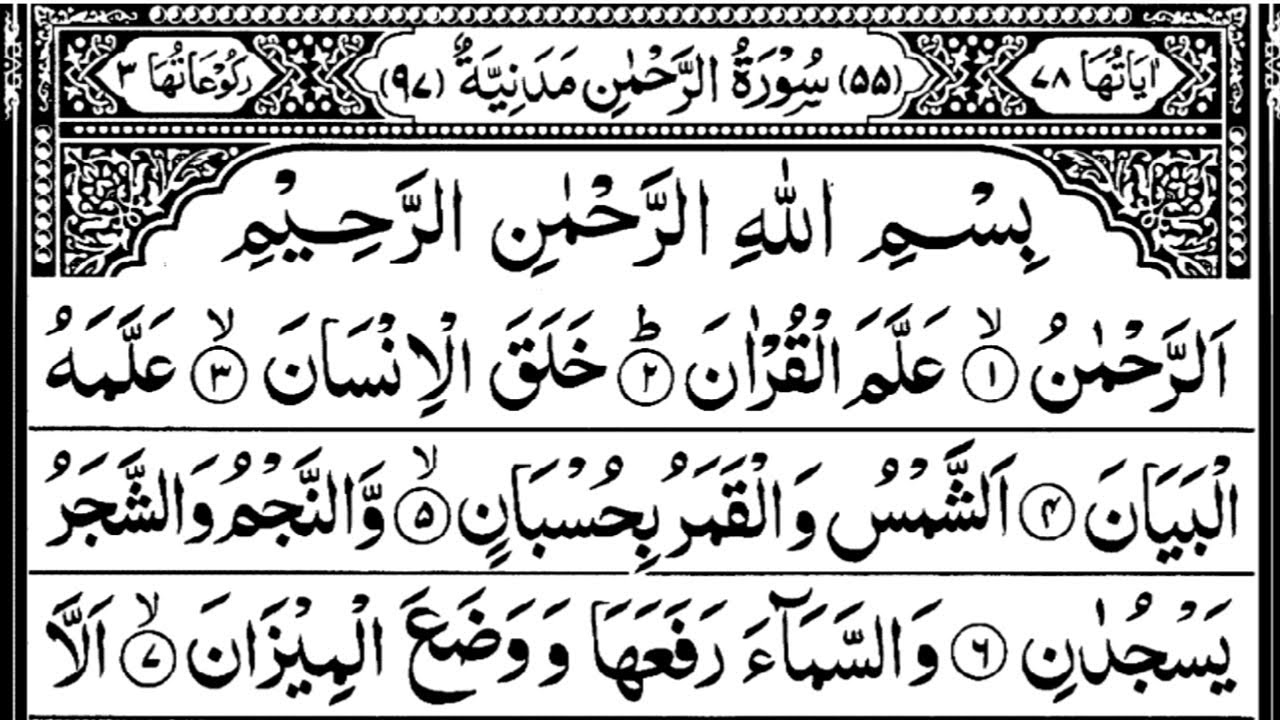 اٰیَاتُهَا ۷۸ (۵۵) سُوْرَةُ الرَّحْمٰنِ مَدَنِیَّةٌ (۹۷) رُكُوْعَاتُهَا ۳
بِسْمِ اللهِ الرَّحْمٰنِ الرَّحِیْمِ
اَلرَّحْمٰنُ ۙ﴿۱﴾ عَلَّمَ الْقُرْاٰنَ ؕ﴿۲﴾ خَلَقَ الْاِنْسَانَ ۙ﴿۳﴾ عَلَّمَهُ
الْبَیَانَ ﴿۴﴾ اَلشَّمْسُ وَالْقَمَرُ بِحُسْبَانٍ ۙ﴿۵﴾ وَّالنَّجْمُ وَالشَّجَرُ
یَسْجُدٰنِ ﴿۶﴾ وَالسَّمَآءَ رَفَعَهَا وَوَضَعَ الْمِیْزَانَ ۙ﴿۷﴾ اَلَّا